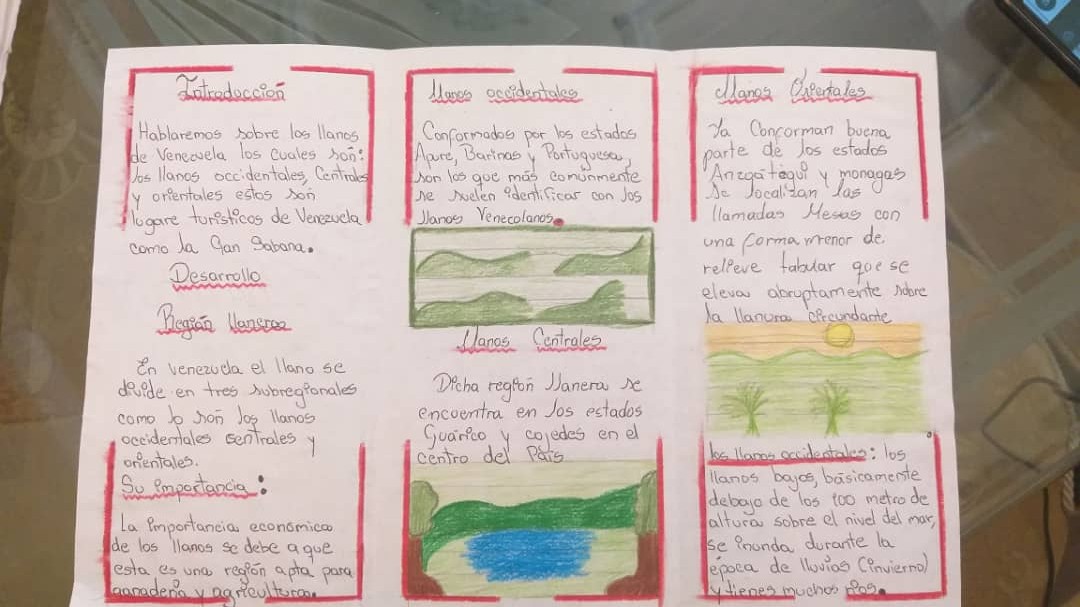 Introducción
Hablaremos sobre los llanos
de Venezuela los cuales són:
los llanos occidentales, Centrales
y orientales estos són
lugare turísticos de Venezuela
como la Gan Sabana.
Desarrollo
Región llaneras
En venezuela el llano se
divide en tres subregionales
como lo són los llanos
occidentales sentrales y
orientales.
Su importancia:
La importancia económica
de los llanos se debe a que
esta es una región apta para
ganadería y agricultura.
Llanos occidentales
Conformados por los estados
Apure, Barinas y Portuguesa,
son los que más comúnmente
se suelen identificar con los
llanos Venecolanos.
Llanos Centrales
Dicha región llanera se
encuentra en los estados
Guárico y cojedes en el
centro del País
Llanos Orientales
Ya Conforman buena
parte de los estados
Anzoátegui y monagas
Se localizan las
llamadas Mesas con
una forma menor de
relieve tabular que se
eleva abruptamente sobre
la llanura circundante
los llanos occidentales: los
llanos bajos, básicamente
debajo de los 100 metro de
altura sobre el nivel del mar,
se inunda durante la
época de lluvias (invierno)
y tienes muchos ríos.